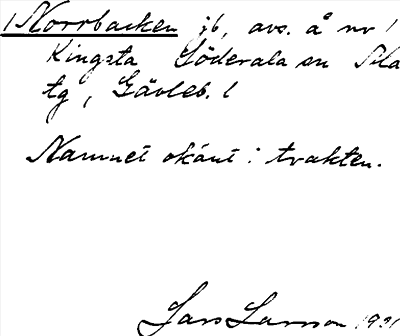 Norrbacken jb, avs. å nr 1
Kingsta Söderala sn Ala
tg, Gävleb. l
Namnet okänt i trakten.
Lars Larsson 1931